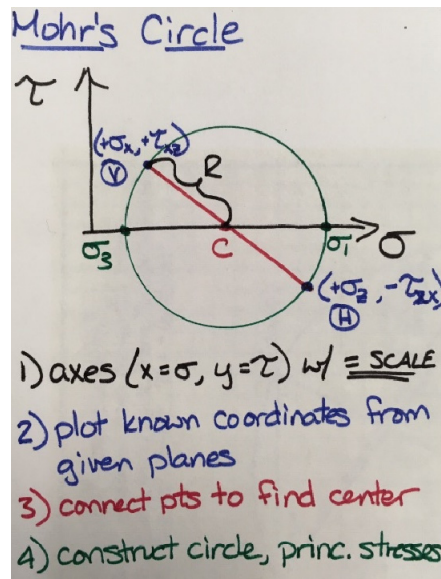 Mohr's Circle
τ
(+σx, +τxz)
V
R
σ3
C
σ1
σ
(+σz, -τzx)
H
1) axes (x=σ, y=τ) w/ = SCALE
2) plot known coordinates from
given planes
3) connect pts to find center
4) construct circle, princ. stresses